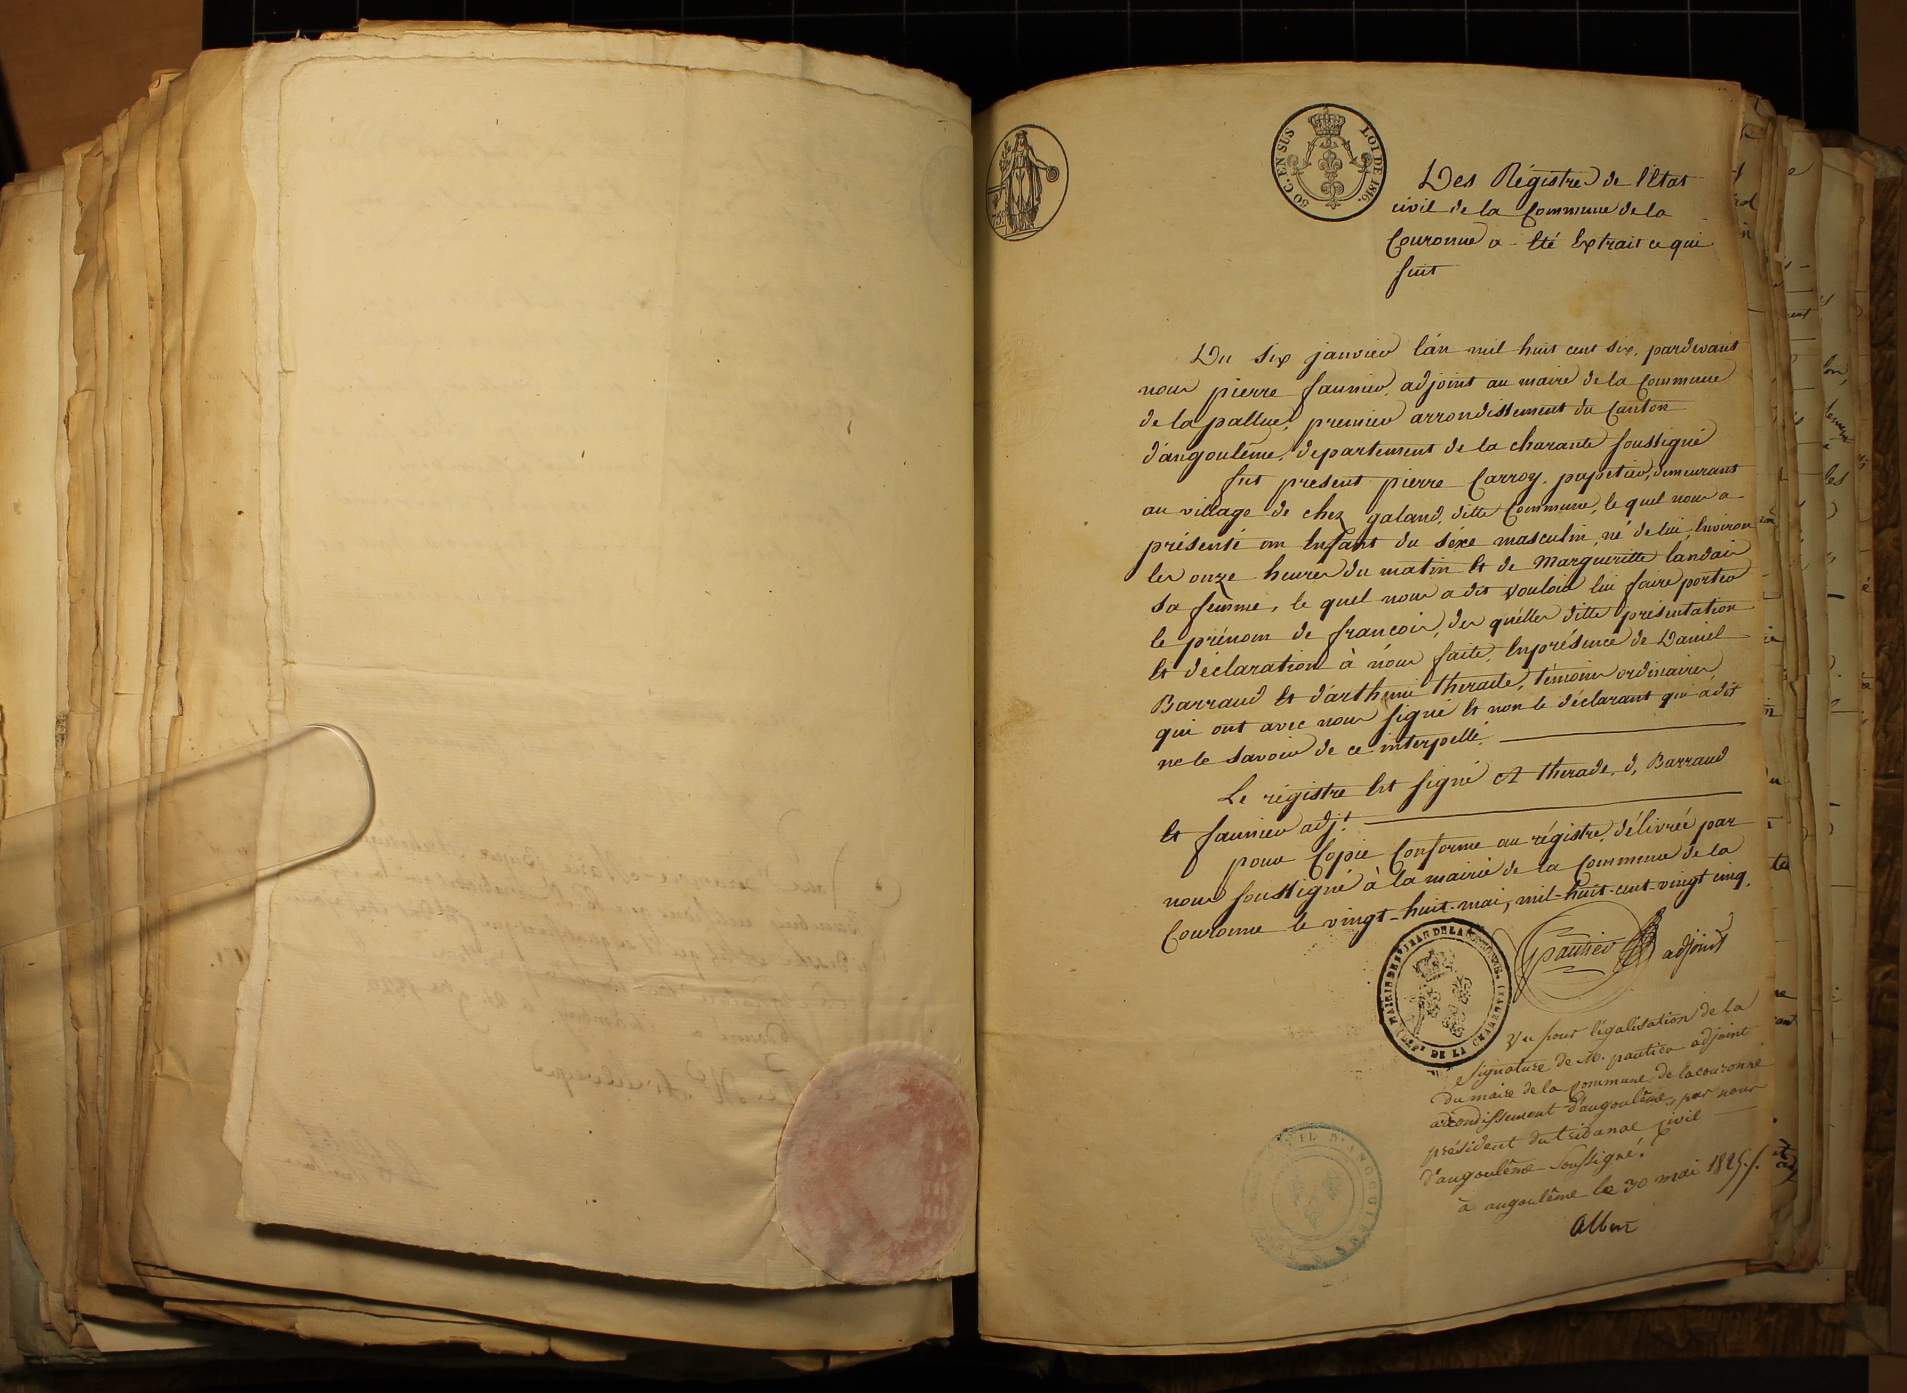 50 C. EN SUS
LOI DE 1816.
Des Régistres de l'Etat
civil de la Commune de la
Couronne a été Extrait ce qui
suit
Du six janvier l'an mil huit cent six, pardevant
nous pierre faunier, adjoint au maire de la Commune
de la pallue, premier arrondissement du Canton
d'angoulême, département de la charante soussigné
fut présent pierre Carroy, papetier, demeurant
au village de chez galand, ditte Commune, le quel nous a
présenté un Enfant du séxe masculin, né de lui, Environ
les onze heures du matin Et de Margueritte landais
sa femme, le quel nous a dit vouloir lui faire porter
le prénom de françois, des quélles ditte présentation
Et déclaration à nous faite, Enprésence de Daniel
Barraud Et d'arthemi therade, témoins ordinaires
qui ont avec nous signé Et non le déclarant qui a dit
ne le savoir de ce interpellé.
Le régistre Est signé A therade, d, Barraud
Et faunier adj.t
pour Copie Conforme au régistre, délivrée par
nous soussigné à la mairie de la Commune de la
Couronne le vingt-huit-mai, mil-huit-cent-vingt cinq.
pautier adjoint
DE LA CHARENTE
Vu pour légalisation de la
signature de M. pautier adjoint
du maire de la commune de lacouronne
arrondissement d'angoulême, par nous
président du tribunal civil
d'angoulême soussigné.
à angoulême le 30 mai 1825./.
Albert